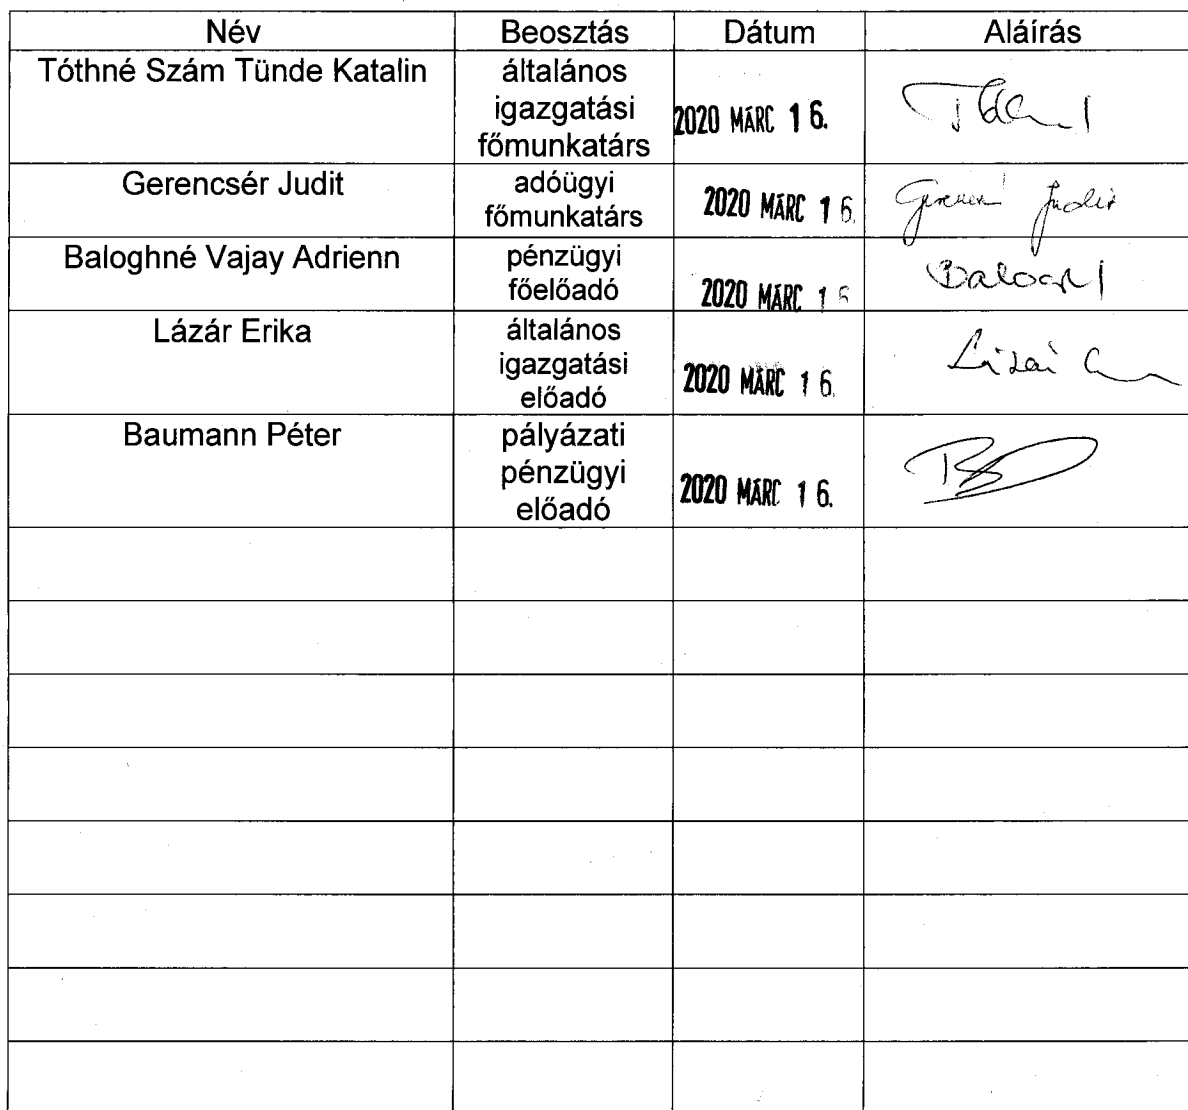 Név Beosztás Dátum Aláírás
Tóthné Szám Tünde Katalin általános
igazgatási
főmunkatárs
2020 MÁRC 16.
Gerencsér Judit adóügyi
főmunkatárs
2020 MÁRC 16.
Judit
Baloghné Vajay Adrienn pénzügyi
főelőadó
2020 MÁRC 16
Lázár Erika általános
igazgatási
előadó
2020 MÁRC 16.
Baumann Péter pályázati
pénzügyi
előadó
2020 MÁRC 16.